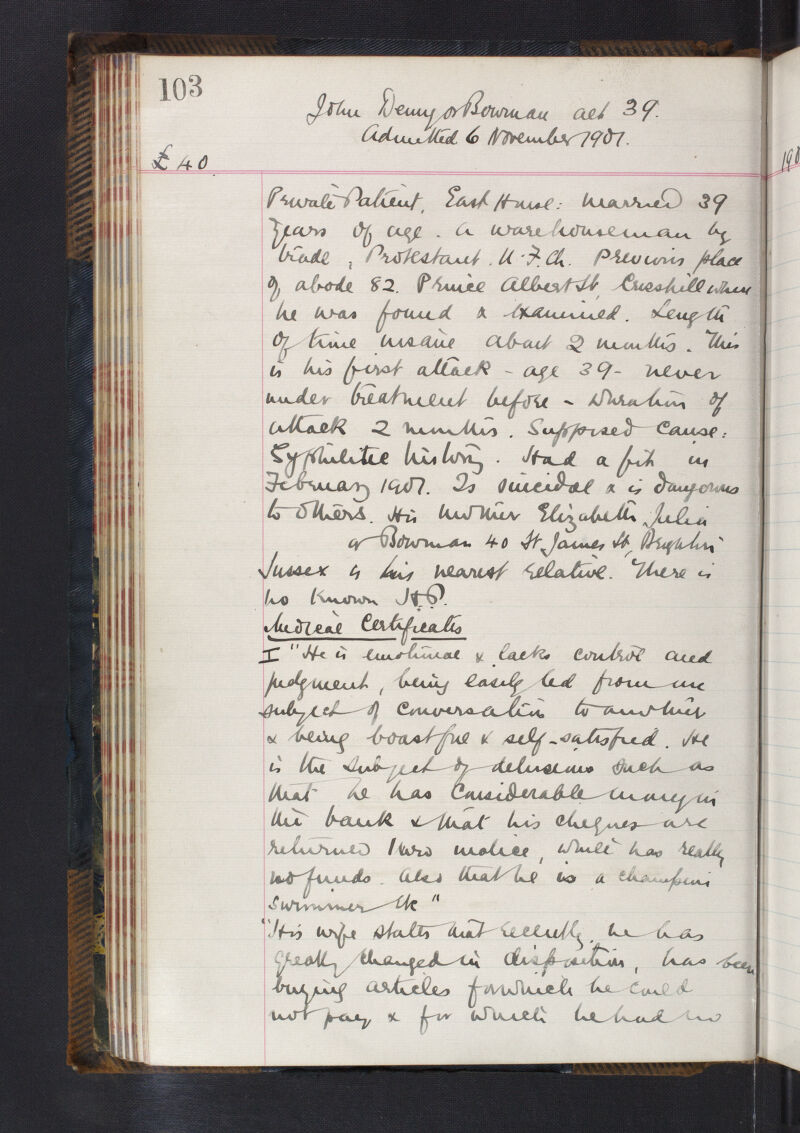 103
John Denny or Bowman aet 39.
Admitted 6 November 1901.
£40
190
Private Patient, East House: married 39
years of age. A warehouseman by
trade, Protestant. U.F.Ch. Previous place
of abode 82. Prince Albert St Crosshill where
he was found & examined. Length
of time insane about 2 months. This
is his first attack - age 39 - never
under treatment before - duration of
attack 2 months. Supposed cause:
Syphilitic history. Had a fit in
February 1901. Is suicidal & is dangerous
to others. His mother Elizabeth Julia
or Bowman 40 St James St, Brighton
Sussex is his nearest relative. There is
no known H.P.
Medical Certificates
I "He is emotional & lacks control and
judgment, being easily led from one
subject of conversation to another
& being boastful & self-satisfied. He
is the subject of delusions such as
that he has considerable money in
the bank & that his cheques are
returned thro malice, while has really
no funds. Also that he is a champion
swimmer etc"
"His wife states that recently he has
greatly changed in disposition, has been
buying articles for which he could
not pay & for which he had no